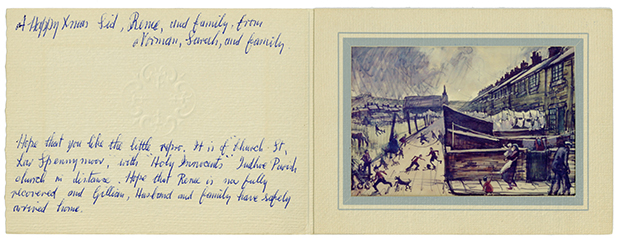 A Happy Xmas Sid, Renee, and family, from
Norman, Sarah, and family
Hope that you like the little repro. It is of Church St,
Low Spennymoor, with "Holy Innocents" Tudhoe Parish
church in distance. Hope that Renee is now fully
recovered and Gillian, Husband and family have safely
arrived home.